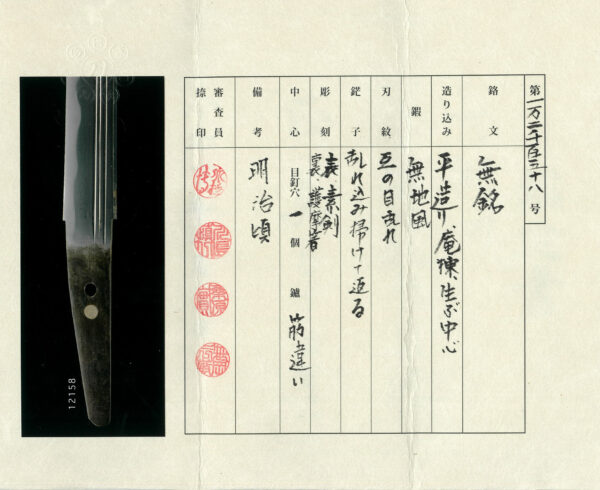 第一万二千百五十八号
銘文 無銘
造り込み 平造り、庵棟、生ぶ中心
鍛 無地風
刃紋 互の目乱れ
鋩子 乱れ込み掃けて返る
彫刻 表、素剣
裏、護摩箸
中心 目釘穴 一個 鑢 筋違い
備考 明治頃
審査員
捺印
12158